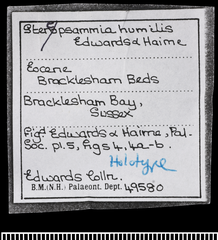 Stereopsammia humilis
Edwards & Haime
Eocene
Bracklesham Beds
Bracklesham Bay,
Sussex
Figd Edwards & Haime, Pal.
Soc. pl.5, figs 4, 4a-b.
Holotype
Edwards Colln.
B.M.(N.H.) Palaeont. Dept. 49580